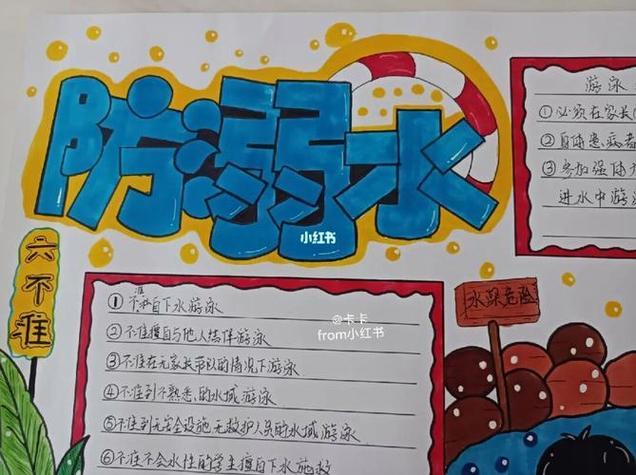 防溺水
小红书
游泳
①必须在家长
②身体患病者
③参加强体力
进水中游泳
六不准
①不准私自下水游泳
②不准擅自与他人结伴游泳
@卡卡
from小红书
③不准在无家长带队的情况下游泳
④不准到不熟悉的水域游泳
⑤不准到无安全设施、无救护人员的水域游泳
⑥不准不会水性的学生擅自下水施救
水深危险